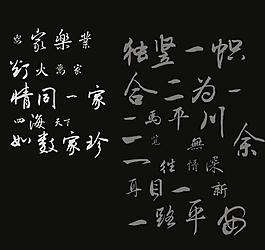 家樂業
灯火 萬家
情同一家
四海 天下
如數家珍
独竖一帜
合二为一
一馬平川
一笔 無 余
一往情深
耳目一新
一路平安